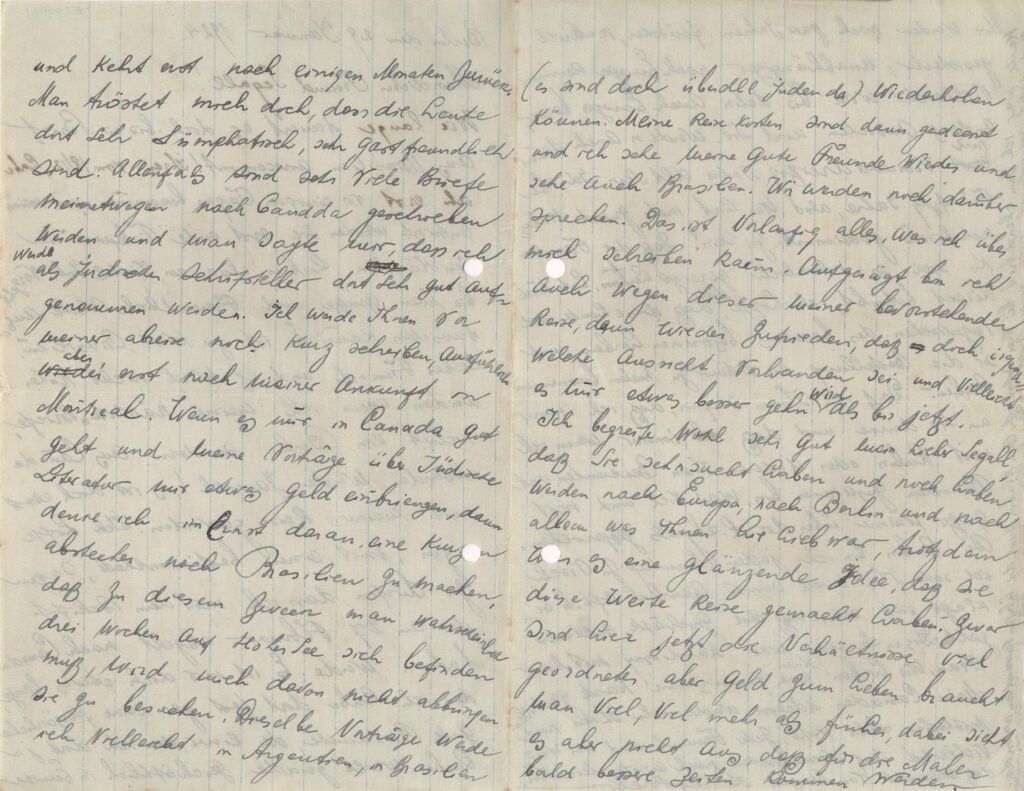 und Kehrt erst nach einigen Monaten zurück.
Man tröstet mich doch, dass die Leute
dort sehr Sümphatisch, sehr gastfreundlich
sind. Allenfals sind sehr Viele Briefe
meinetwegen nach Canada geschrieben
worden und man sagte mir, dass ich
werde
als Jüdischen Schriftsteller dort sehr gut auf-
genommen werden. Ich werde Ihnen Vor
meiner abreise noch Kurz schreiben, Ausführlich
aber
erst nach meiner Ankunft in
Montreal. Wenn es mir in Canada gut
geht und meine Vorträge über Jüdische
Literatur mir etwas Geld einbriengen, dann
denke ich im Ernst daran, eine Kurzen
abstecher nach Brasilien zu machen,
daß zu diesem Zweck man wahrscheinlich
drei Wochen auf Hoher See sich befinden
muß, Wird mich davon nicht abbringen
sie zu besuchen. Dieselbe Vorträge Werde
ich Viellercht in Argentien, in Brasilien
(es sind doch überall juden da) Wiederhohen
Können. Meine Reise Kosten sind dann gedeckt
und ich sehe meine Gute Freunde Wieder und
sehe auch Brasilien. Wir werden noch darüber
sprechen. Das ist Vorlaufig alles, was ich über
mich schreiben Kann. Aufgerägt bin ich
auch wegen dieser meiner bevorstehenden
Reise, dann Wieder Zufrieden, daß doch irgend-
welche Aussicht Vorhanden sei und Viellercht
wird
es mir etwas besser gehn als bis jetzt.
Ich begreife Wohl sehr Gut mein Lieber Segall,
daß Sie sehnsucht haben und noch haben
werden nach Europa, nach Berlin und nach
allem was Ihnen hie Lieb war, trotzdem
War es eine glänzende Idee, daß Sie
diese Weite Reise gemacht haben. Zwar
sind hier jetzt die Verhältnisse Viel
geordneter aber Geld Zum Leben braucht
man Viel, Viel mehr als früher, dabei sieht
es aber nicht aus, daß für die Maler
bald bessere Zeiten Kommen werden.